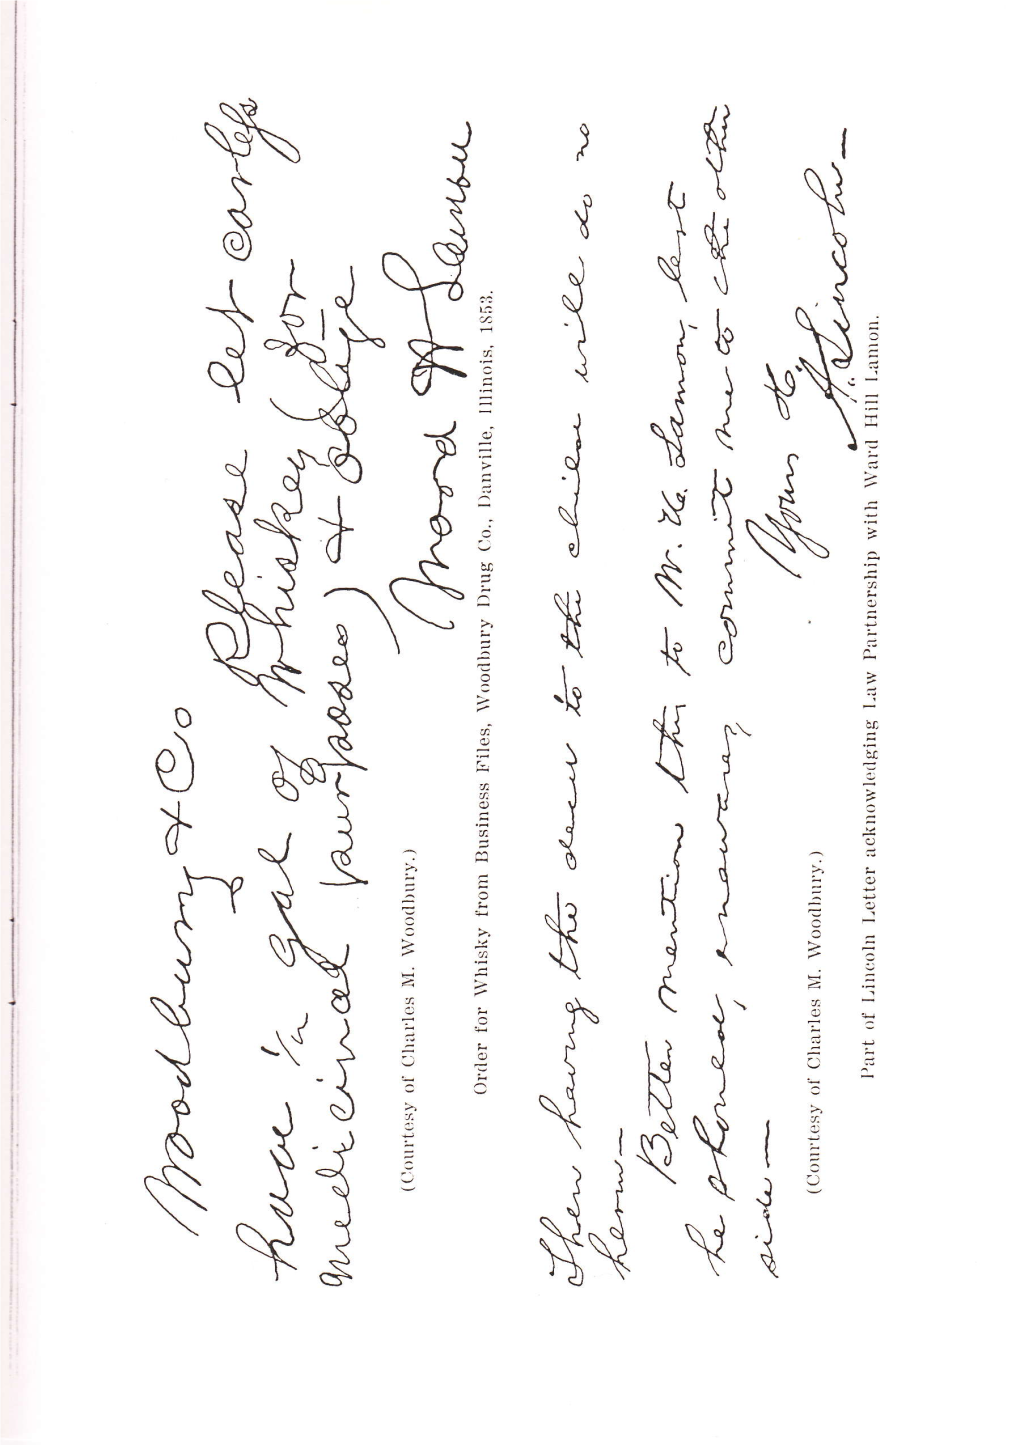 Woodbury & Co
Please let
have 1/2 gal of Whiskey (for
medicinal purposes) & oblige
Ward H Lamon
(Courtesy of Charles M. Woodbury.)
Order for Whisky from Business Files, Woodbury Drug Co., Danville, Illinois, 1853.
Then having the decn to the chilse will do no
harm—
Better mention this to W. H. Lamon, lest
he should, unawares, commit me to the other
side—
Yours &c.
A. Lincoln—
(Courtesy of Charles M. Woodbury.)
Part of Lincoln Letter acknowledging Law Partnership with Ward Hill Lamon.